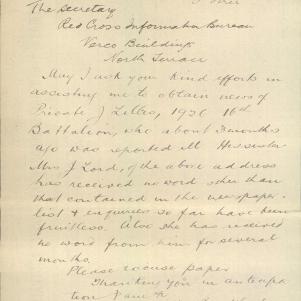 The Secretary
Red Cross Information Bureau
Verco Buildings
North Terrace
May I ask your kind efforts in
assisting me to obtain news of
Private J Lilles, 1936 16th
Battalion, who about 3 months
ago was reported ill His sister
Mrs J Lord, of the above address
has received no word other than
that contained in the newspaper
list & enquiries so far have been
fruitless. Also she has received
no word from him for several
months.
Please excuse paper
Thanking you in anticipa
tion I am